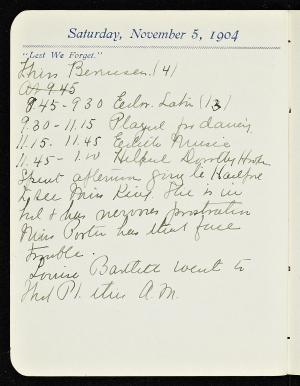 Saturday, November 5, 1904
"Lest We Forget."
Miss Benussen. (4)
At 9.45
8.45-9.30 Latin (13)
9.30-11.15 Played for dancing
11.15. 11.45 Edith Music
11.45-1.00 Helped Dorothy
Spent afternoon going to
to see Miss King. She is in
bed & has nervous prostration
Miss Porter has that face
trouble.
Louise Bartlett went to
Pt. this A.M.